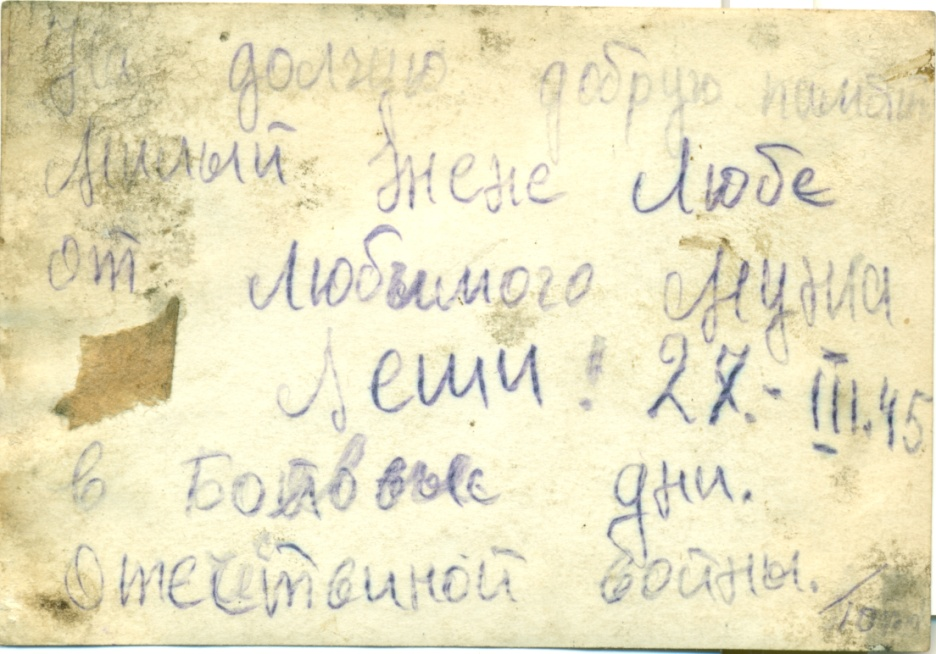 На должию добрую память
Милый жене Любе
от Любимого Мужа
Леши! 27.-III.45
в Боивые дни.
Отечиствиной войны.